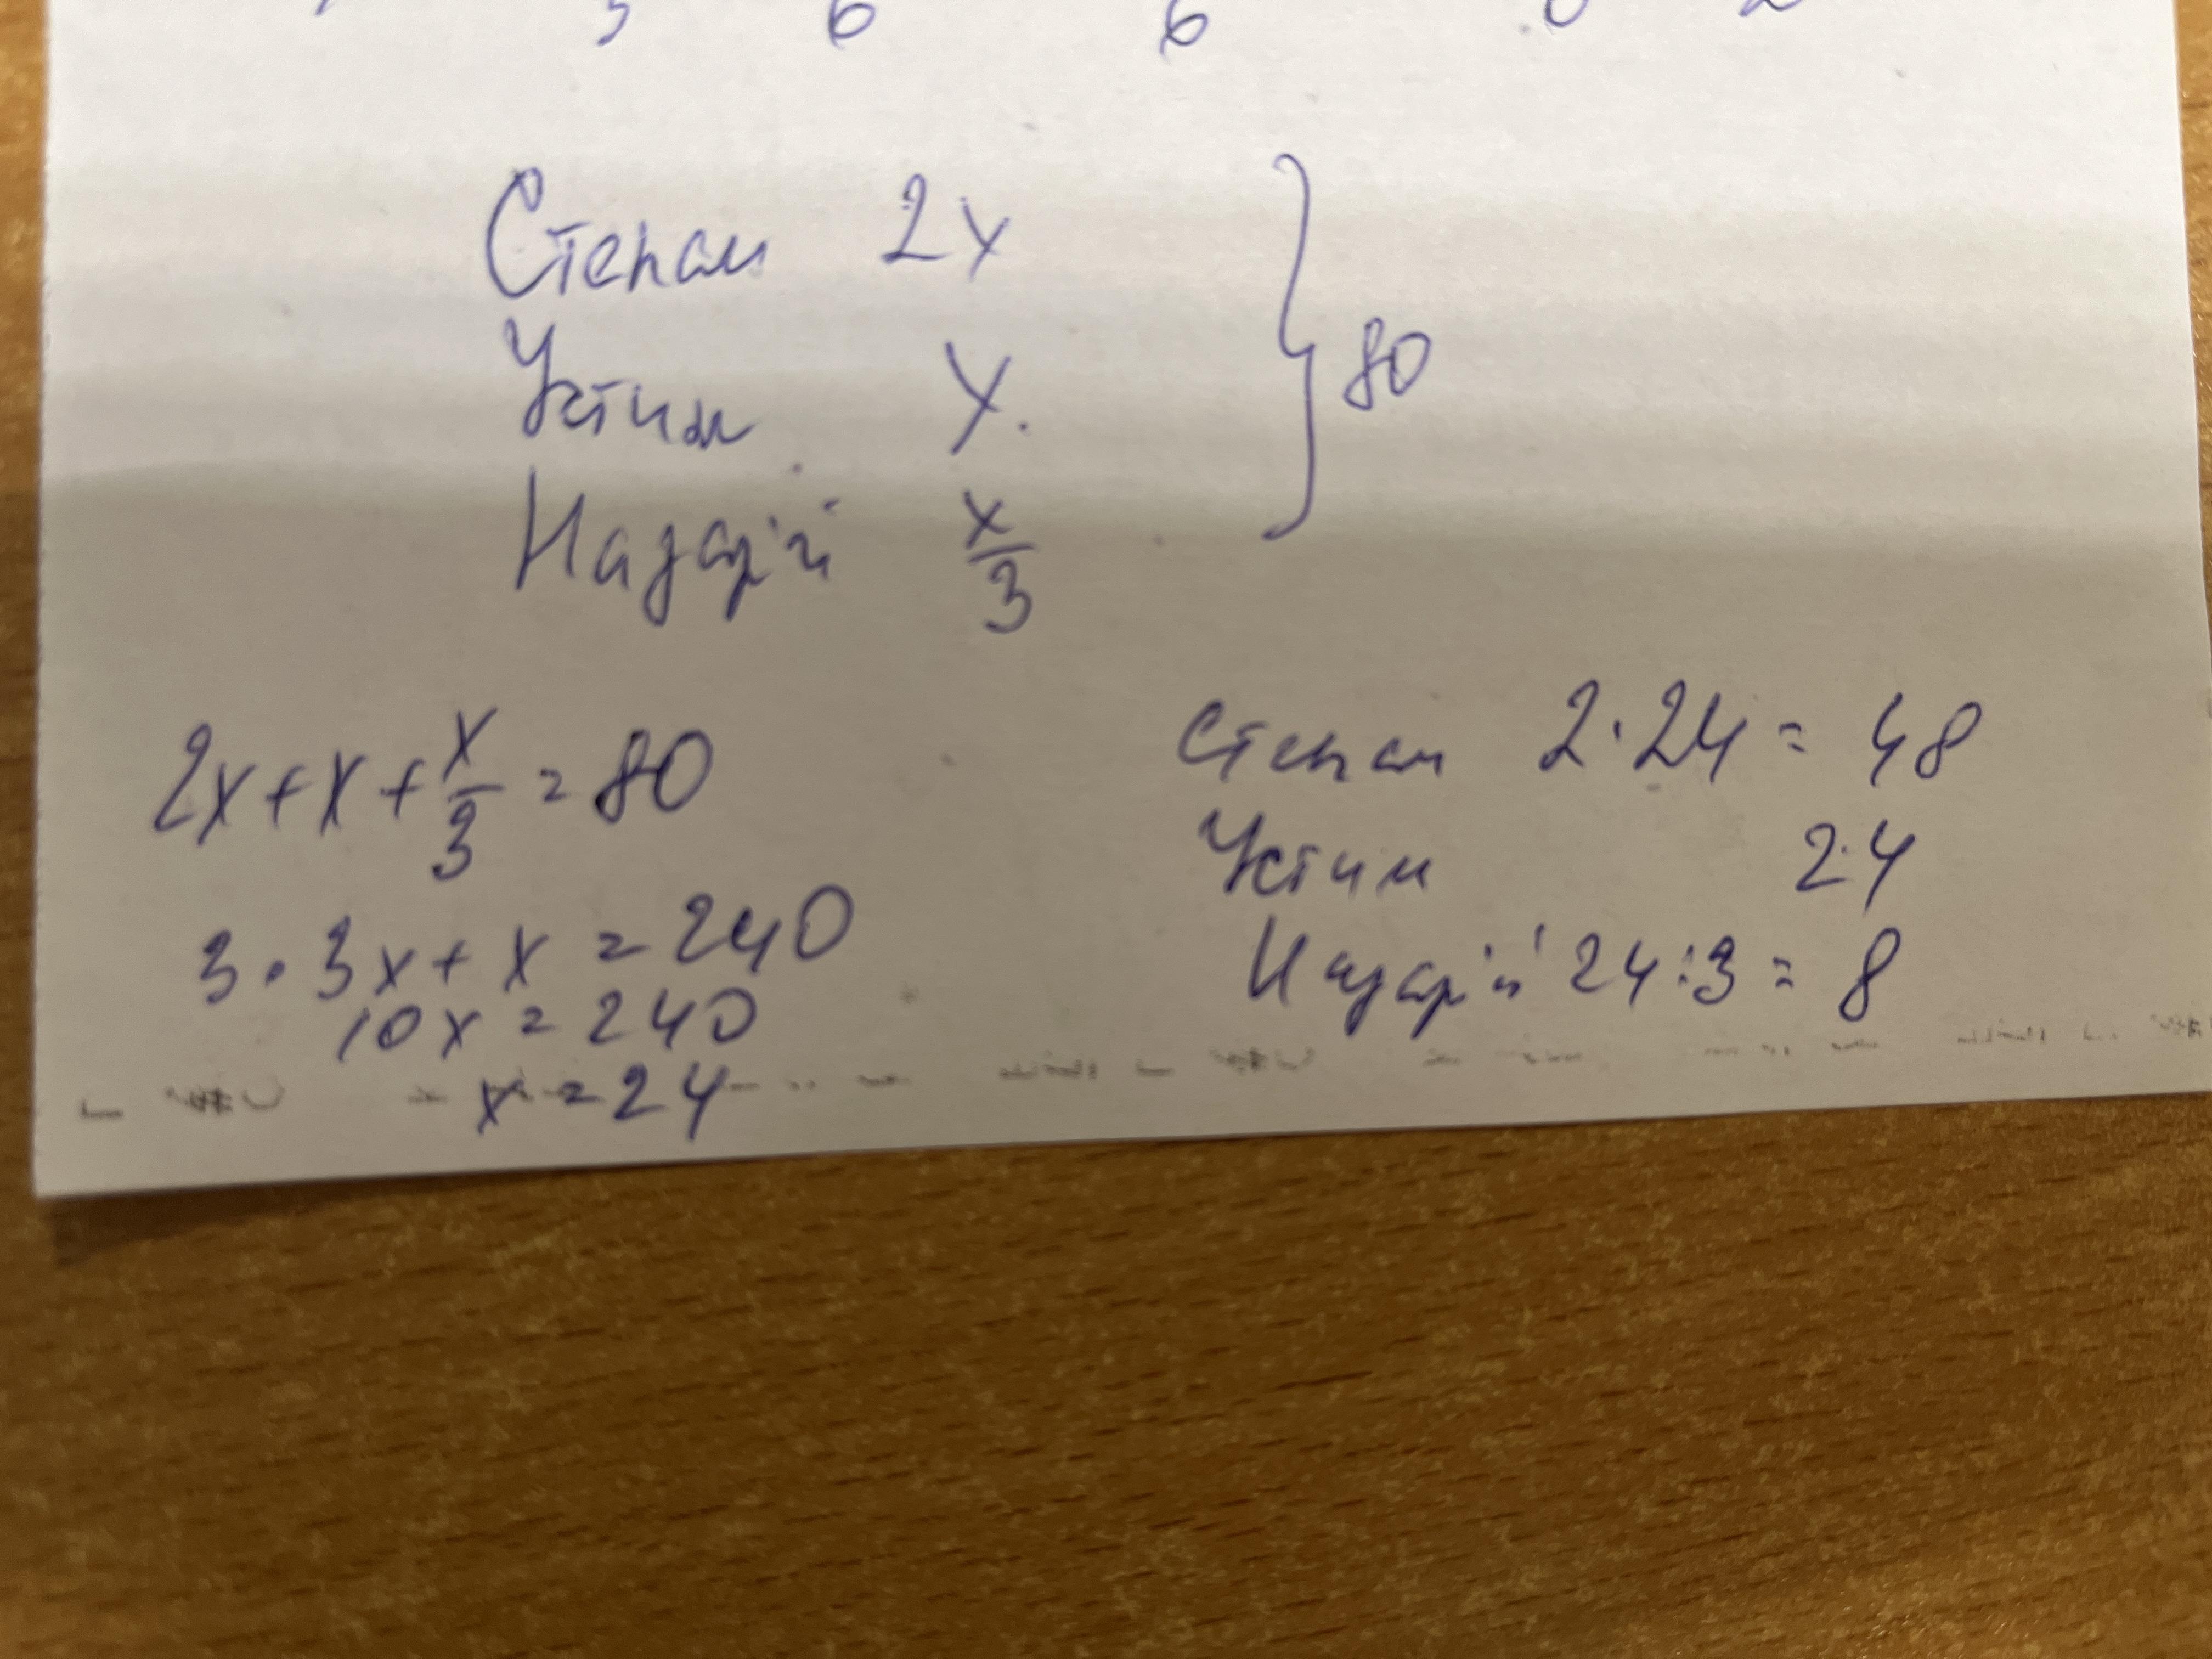 Степан 2x
Устим x.
Назарій x/3
80
2x+x+x/3=80
3·3x+x=240
10x=240
x=24
Степан 2·24=48
Устим 24
Назарій 24:3=8